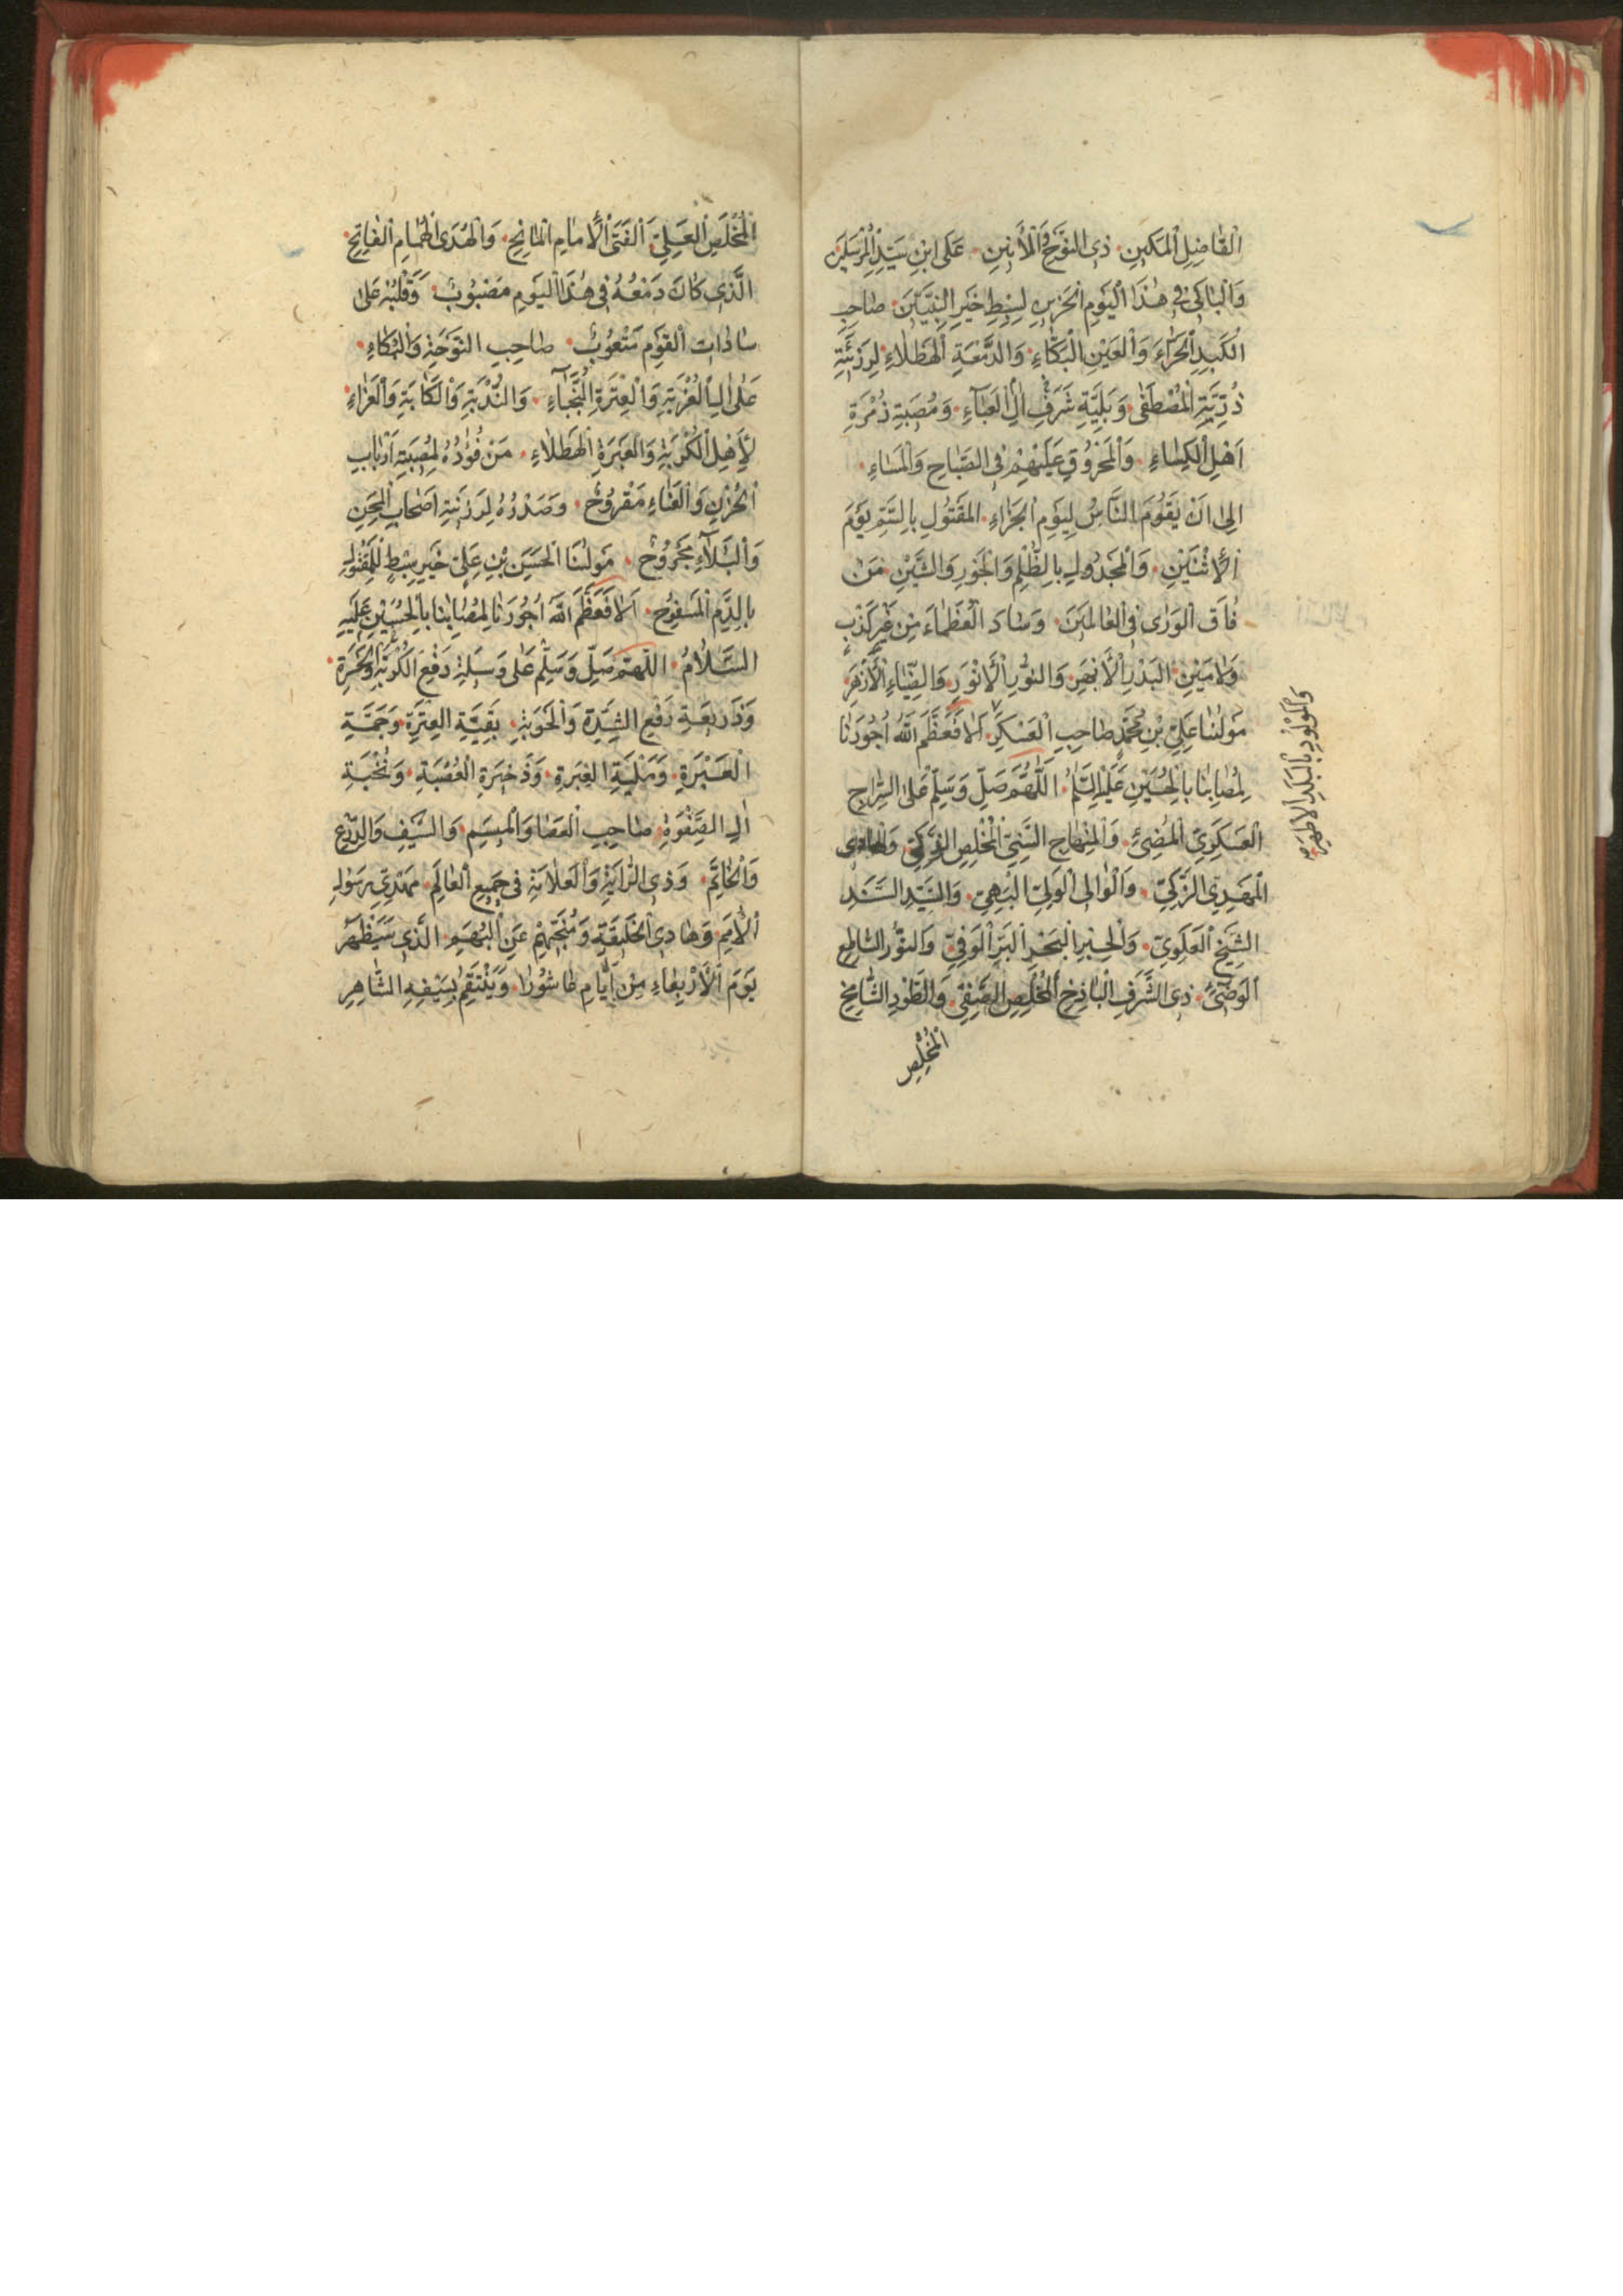 الْفَاضِلِ الْمَكِينِ. ذِى النَّوْحِ وَالْأَنِينِ. عَلَى ابْنِ سَيِّدِ الْمُرْسَلِينَ
وَالْبَاكِى فِى هٰذَا الْيَوْمِ الْحَزِينِ لِسِبْطِ خَيْرِ النَّبِيِّينَ. صَاحِبِ
الْكَبِدِ الْحَرَّاءِ وَالْعَيْنِ الْبَكَّاءِ. وَالدَّمْعَةِ الْهَطْلَاءِ. لِرَزِيَّةِ
ذُرِّيَّةِ الْمُصْطَفٰى. وَبَلِيَّةِ شَرَفِ اٰلِ الْعَبَآءِ. وَمُصِيبَةِ زُمْرَةِ
اَهْلِ الْكِسَاءِ. وَالْمَحْزُوقِ عَلَيْهِمْ فِى الصَّبَاحِ وَالْمَسَاءِ.
اِلٰى اَنْ يَقُومَ النَّاسُ لِيَوْمِ الْجَزَاءِ. الْمَقْتُولِ بِالسَّمِّ يَوْمَ
الْاِثْنَيْنِ. وَالْمَجْدُولِ بِالظُّلْمِ وَالْجَوْرِ وَالشَّيْنِ. مَنْ
فَاقَ الْوَرٰى فِى الْعَالَمِينَ. وَسَادَ الْعُظَمَاءَ مِنْ غَيْرِ كَذِبٍ
وَلَا مَيْنٍ. الْبَدْرِ الْأَبْهَرِ. وَالنُّورِ الْأَنْوَرِ. وَالضِّيَاءِ الْأَزْهَرِ.
وَالْمَوْلُودِ بِالْبَلَدِ الْأَطْهَرِ.
مَوْلٰنَا عَلِىِّ بْنِ مُحَمَّدٍ صَاحِبِ الْعَسْكَرِ. اَلَا فَعَظَّمَ اللّٰهُ اُجُورَنَا
لِمُصَابِنَا بِالْحُسَيْنِ عَلَيْهِ السَّلَامُ. اَللّٰهُمَّ صَلِّ وَسَلِّمْ عَلَى السِّرَاجِ
الْعَسْكَرِىِّ الْمُضِىءِ. وَالْمِنْهَاجِ السَّنِىِّ الْمُخْلِصِ الزَّكِىِّ. وَالْهَادِى
الْمَهْدِىِّ الزَّكِىِّ. وَالْوَالِى الْوَلِىِّ الْبَهِىِّ. وَالسَّيِّدِ السَّنَدِ
الشَّيْخِ الْعَلَوِىِّ. وَالْحِبْرِ الْبَحْرِ الْبَرِّ الْوَفِىِّ. وَالنُّورِ السَّاطِعِ
الْوَضِىءِ. ذِى الشَّرَفِ الْبَاذِخِ الْمُخْلِصِ الصَّفِىِّ. وَالطَّوْدِ الشَّامِخِ
الْمُخْلِصِ
الْمُخْلَصِ الْعَلِىِّ. الْفَتَى الْأِمَامِ الْمَانِحِ. وَالْهُدَى الْهُمَامِ الْفَاتِحِ.
الَّذِى كَانَ دَمْعُهُ فِى هٰذَا الْيَوْمِ مَصْبُوبٌ. وَقَلْبُهُ عَلٰى
سَادَاتِ الْقَوْمِ مَتْعُوبٌ. صَاحِبِ النَّوْحَةِ وَالْبُكَاءِ.
عَلٰى اٰلِ الْغُرْبَةِ وَالْعِتْرَةِ النُّجَبَآءِ. وَالنُّدْبَةِ وَالْكَاٰبَةِ وَالْعَزَاءِ.
لِأَهْلِ الْكُرْبَةِ وَالْعَبْرَةِ الْهَطْلَاءِ. مَنْ فُؤَادُهُ لِمُصِيبَةِ اَرْبَابِ
الْحُزْنِ وَالْعَنَاءِ مَقْرُوحٌ. وَصَدْرُهُ لِرَزِيَّةِ اَصْحَابِ الْمِحَنِ
وَالْبَلَآءِ مَجْرُوحٌ. مَوْلٰنَا الْحَسَنِ بْنِ عَلِىٍّ خَيْرِ سِبْطٍ لِلْمَقْتُولِ
بِالدَّمِ الْمَسْفُوحِ. اَلَا فَعَظَّمَ اللّٰهُ اُجُورَنَا لِمُصَابِنَا بِالْحُسَيْنِ عَلَيْهِ
السَّلَامُ. اَللّٰهُمَّ صَلِّ وَسَلِّمْ عَلٰى وَسِيلَةِ دَفْعِ الْكُرْبَةِ وَالْحَسْرَةِ.
وَذَرِيعَةِ رَفْعِ الشِّدَّةِ وَالْحَوْبَةِ. بَقِيَّةِ الْعِتْرَةِ. وَجَمَّةِ
الْعَبْرَةِ. الْعِبْرَةِ. وَذَخِيرَةِ الْعُصْبَةِ. وَنُخْبَةِ
اٰلِ الصَّفْوَةِ. صَاحِبِ الْعَصَا وَالْمِيسَمِ. وَالسَّيْفِ وَالدِّرْعِ
وَالْخَاتَمِ. وَذِى الرَّايَةِ وَالْعَلَامَةِ فِى جَمِيعِ الْعَالَمِ. مَهْدِىِّ رَسُولِ
الْأُمَمِ. وَهَادِى الْخَلِيقَةِ وَمُنَجِّيهِمْ عَنِ الْبُهَمِ. الَّذِى سَيَظْهَرُ
يَوْمَ الْأَرْبِعَاءِ مِنْ اَيَّامِ عَاشُورَا. وَيَنْتَقِمُ بِسَيْفِهِ الشَّاهِرِ